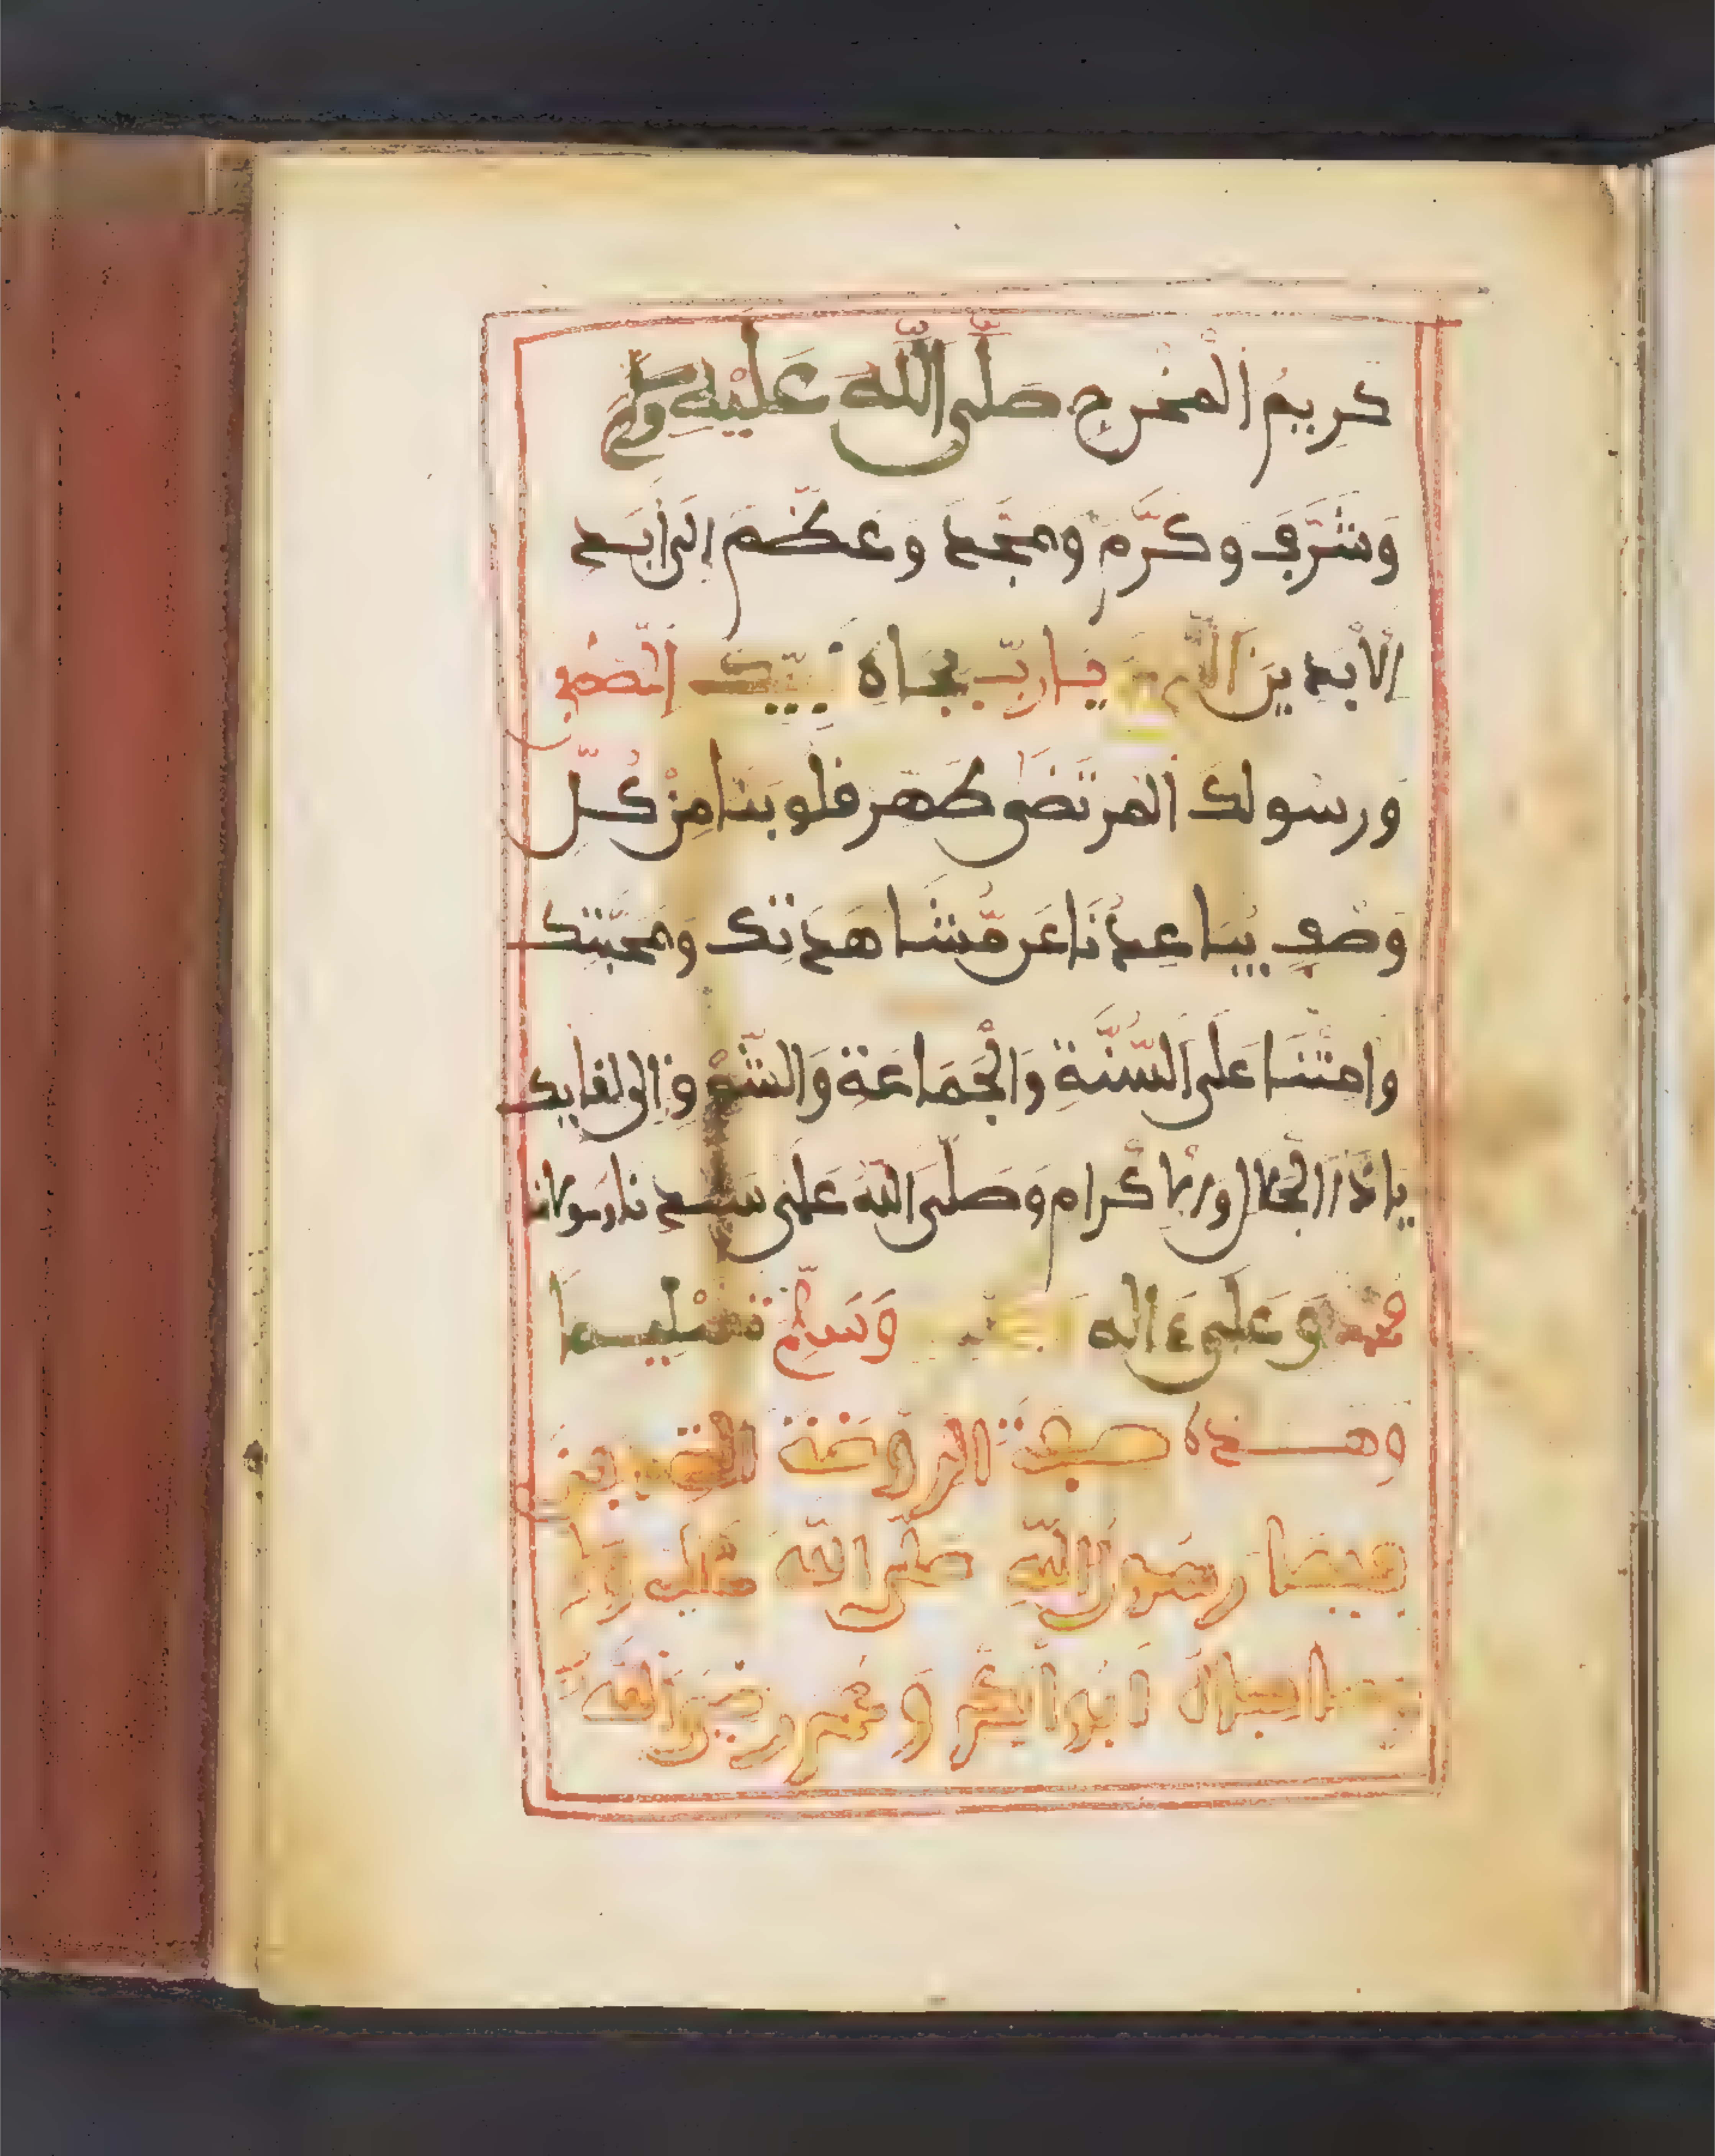 كَرِيمُ الْمَخْرَجِ صَلَّى اللَّهُ عَلَيْهِ وَسَلَّمَ
وَشَرَّفَ وَكَرَّمَ وَمَجَّدَ وَعَظَّمَ إِلَى أَبَدِ
الْأَبَدِينَ اللَّهُمَّ يَا رَبِّ بِجَاهِ نَبِيِّكَ الْمُصْطَفَى
وَرَسُولِكَ الْمُرْتَضَى طَهِّرْ قُلُوبَنَا مِنْ كُلِّ
وَصْفٍ يُبَاعِدُنَا عَن مُّشَاهَدَتِكَ وَمَحَبَّتِكَ
وَأَمِتْنَا عَلَى السُّنَّةِ وَالْجَمَاعَةِ وَالشَّوْقِ إِلَى لِقَايِكَ
يَا ذَا الْجَلَالِ وَالْإِكْرَامِ وَصَلَّى اللَّهُ عَلَى سَيِّدِنَا رَسُولِنَا
مُحَمَّدٍ وَعَلَى ءَالِهِ وَسَلَّمَ تَسْلِيمًا
وَهَذِهِ صِفَةُ الرَّوْضَةِ
رَسُولُ اللَّهِ صَلَّى اللَّهُ عَلَيْهِ وَسَلَّمَ
وَصَاحِبَاهُ أَبُو بَكْرٍ وَعُمَرُ رَضِيَ اللَّهُ